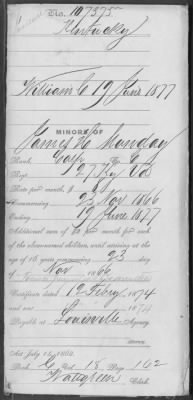 No. 107375
Kentucky
William C 19 June 1877
MINORS OF
James H Munday
Rank, Co.
Regt. 27 Ky Vols
Rate per month, $
Commencing 23 Nov 1866
Ending 19 June 1877
Additional sum of $2 per month for each
of the abovenamed children, until arriving at the
age of 16 years, commencing 23
day of Nov 1866
Certificate dated 12 Febry 1874
and sent 1874
Payable at Louisville Agency.
Act July 14, 1862.
Book C Vol. 18 Page 162
Clerk.